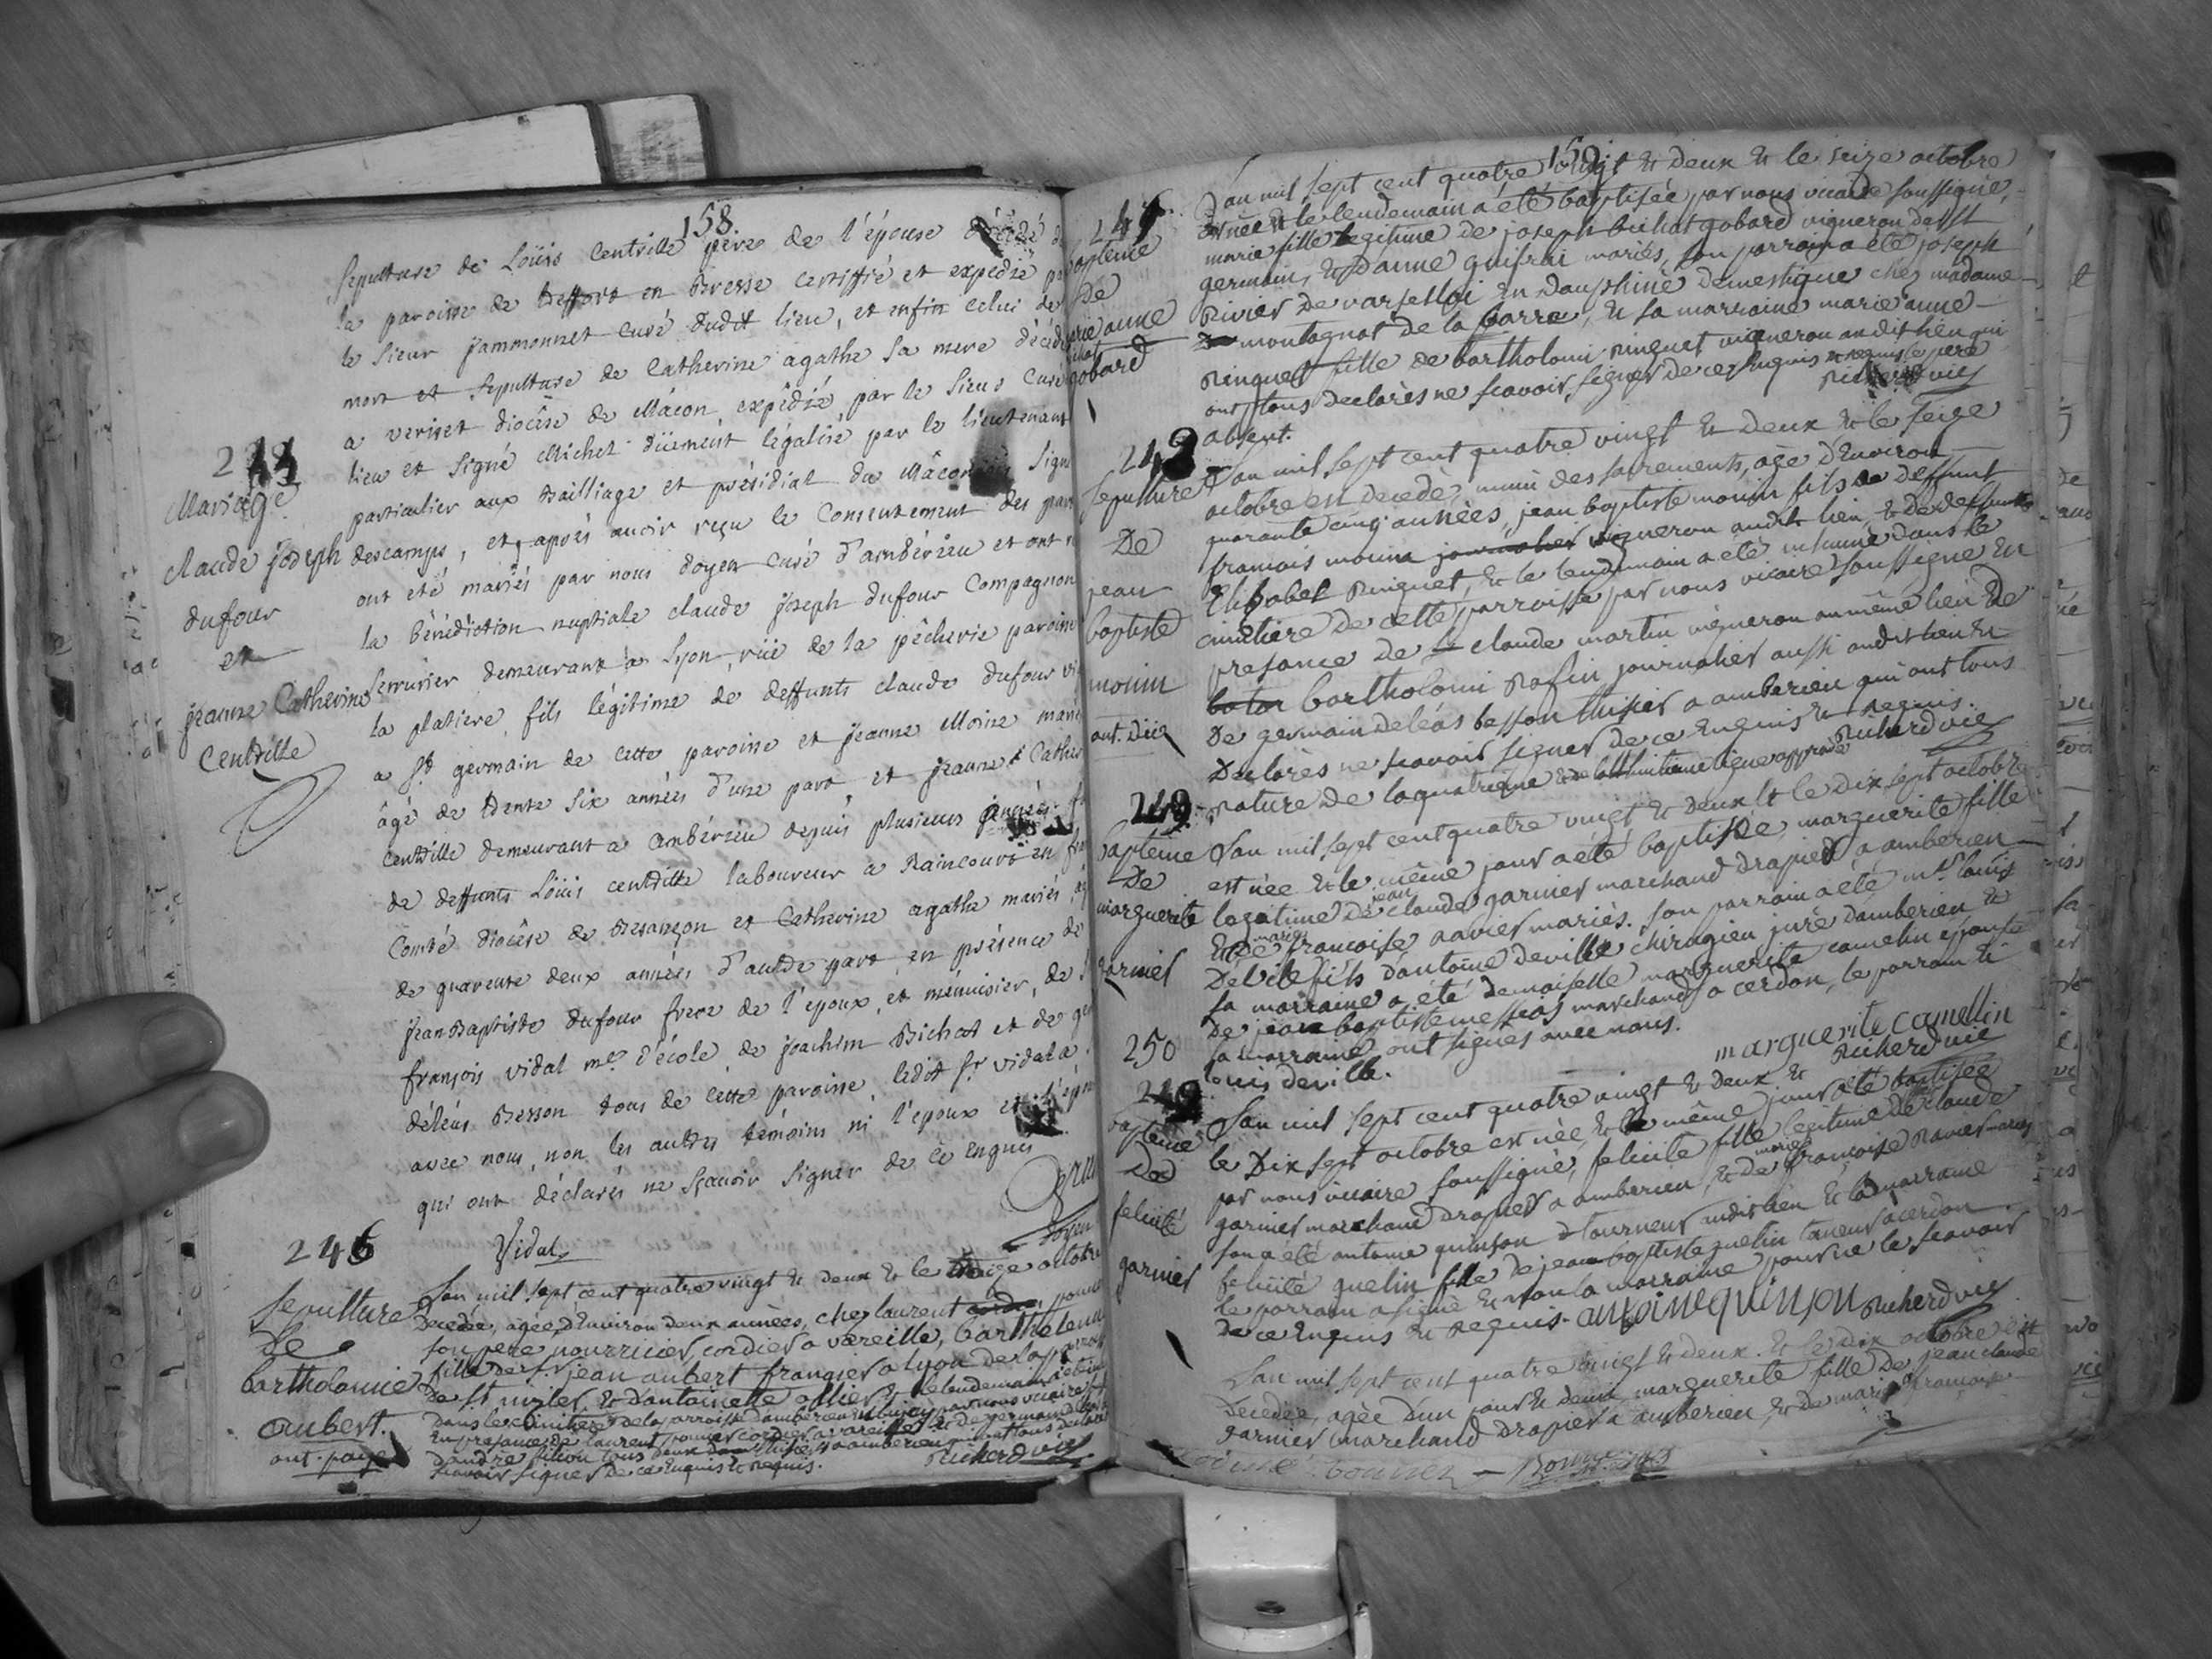 158.
Sepulture de Loüis Centrille père de l'épouse décédé
la paroisse de en Bresse certiffié et expedié
le sieur jammonnet curé dudit lieu, et enfin celui de
mort et sepulture de Catherine agathe sa mere décédé
a veriset diocèse de Mâcon expédié par le sieur curé
lieu et signé Michel düement légalisé par le lieutenant
particulier aux Bailliage et présidial du Mâconnois signé
descamps, et, après avoir reçu le Consentement des
ont été mariés par nous doyen curé d'ambérieu et ont
la bénédiction nuptiale claude joseph dufour Compagnon
Serrurier demeurant à Lyon, rüe de la pêcherie paroisse
la platiere, fils légitime de deffunts claude dufour
a St germain de cette paroisse et jeanne Moine
âgé de trente six années d'une part, et jeanne
Centrille demeurant a Ambérieu depuis plusieurs années
de deffunts Loüis centrille laboureur a Raincourt en
Comté diocèse de Besançon et Catherine agathe mariés,
de quarente deux années d'autre part, en présence de
jean Baptiste dufour frere de l'epoux, et ménuisier, de
françois vidal mtre d'école de joachim Bichat et de
déléus Besson tous de cette paroisse, ledit sr vidal a
avec nous, non les autres témoins ni l'epoux et
qui ont déclarés ne sçavoir signer de ce enquis
Vidal doyen
Mariage
claude joseph
dufour
et
jeanne Catherine
Centrille
246
Sepulture
de
bartholomie
aubert.
ont payé
Lan mil sept cent quatre vingt & deux & le octobre
décédée, agée d'environ deux années, chez laurent
son pere nourricier, cordier a vareille,
fille de sr jean aubert frangier a lyon de la
de st & d'antoinette & le lendemain
dans le cimitiere de la parroisse d'amberieu par nous vicaire
en presance de laurent cordier a vareille & de germain
d'andré filiou tous deux a amberieu qui ont tous
scavoir signer de ce enquis & requis. Richerd vic
159
Lan mil sept cent quatre vingt & deux & le seize octobre
est née & le lendemain a été baptisée par nous vicaire soussigné,
marie fille legitime de joseph bichat gobard vigneron de st
germain, & d'anne guifrai mariés, son parrain a été joseph
Rivier de en dauphiné domestique chez madame
montagnat de la barre, & sa marraine marie anne
Ringuet fille de bartholomi ringuet vigneron audit lieu qui
ont tous declarés ne scavoir signer de ce enquis & requis le pere
absent. Richerd vic
baptême
De
marie anne
bichat
gobard
248
Sepulture
De
jean
baptiste
mounin
ont. Dûe
Lan mil sept cent quatre vingt & deux & le seize
octobre est decedé, muni des sacrements, agé d'environ
quarante cinq années, jean baptiste mounin fils de deffunt
francois mounin journalier vigneron audit lieu, & de deffunte
Elisabet Ringuet, & le lendemain a été inhumé dans le
cimitiere de cette parroisse par nous vicaire soussigné en
presance de claude martin vigneron au même lieu de
bartholomi Rafin journalier aussi audit lieu &
De germain deléas besson a amberieu qui ont tous
Declarés ne scavoir signer de ce enquis & requis.
rature de la quatrieme & de la huitieme ligne approuvé Richerd vic
249
baptême
De
marguerite
garnier
Lan mil sept cent quatre vingt & deux & le dix sept octobre
est née & le même jour a été baptisée marguerite fille
legitime de jean claude garnier marchand drapier a amberieu
& de marie francoise ravier mariés. son parrain a été mr loüis
Deville fils d'antoine deville chirurgien juré d'amberieu &
sa marraine a été demoiselle marguerite camelin épouse
De jean baptiste messias marchand a cerdon, le parrain &
la marraine ont signés avec nous. marguerite camellin
louis deville. Richerd vic
250
baptême
De
felicité
garnier
Lan mil sept cent quatre vingt & deux &
le dix sept octobre est née, & le même jour a été baptisée
par nous vicaire soussigné, felicité fille legitime de claude
garnier marchand drapier a amberieu, & de marie françoise Ravier mariés
son a été antoine quinson tourneur audit lieu & la marraine
felicité guelin fille de jean baptiste guelin taneur a cerdon
le parrain a signé & non la marraine pour ne le scavoir
de ce enquis & requis. antoine quinson Richerd vic
Lan mil sept cent quatre vingt & deux. & le dix octobre est
decedée, agée d'un jour & demi marguerite fille de jean claude
garnier marchand drapier a amberieu, & de marie francoise